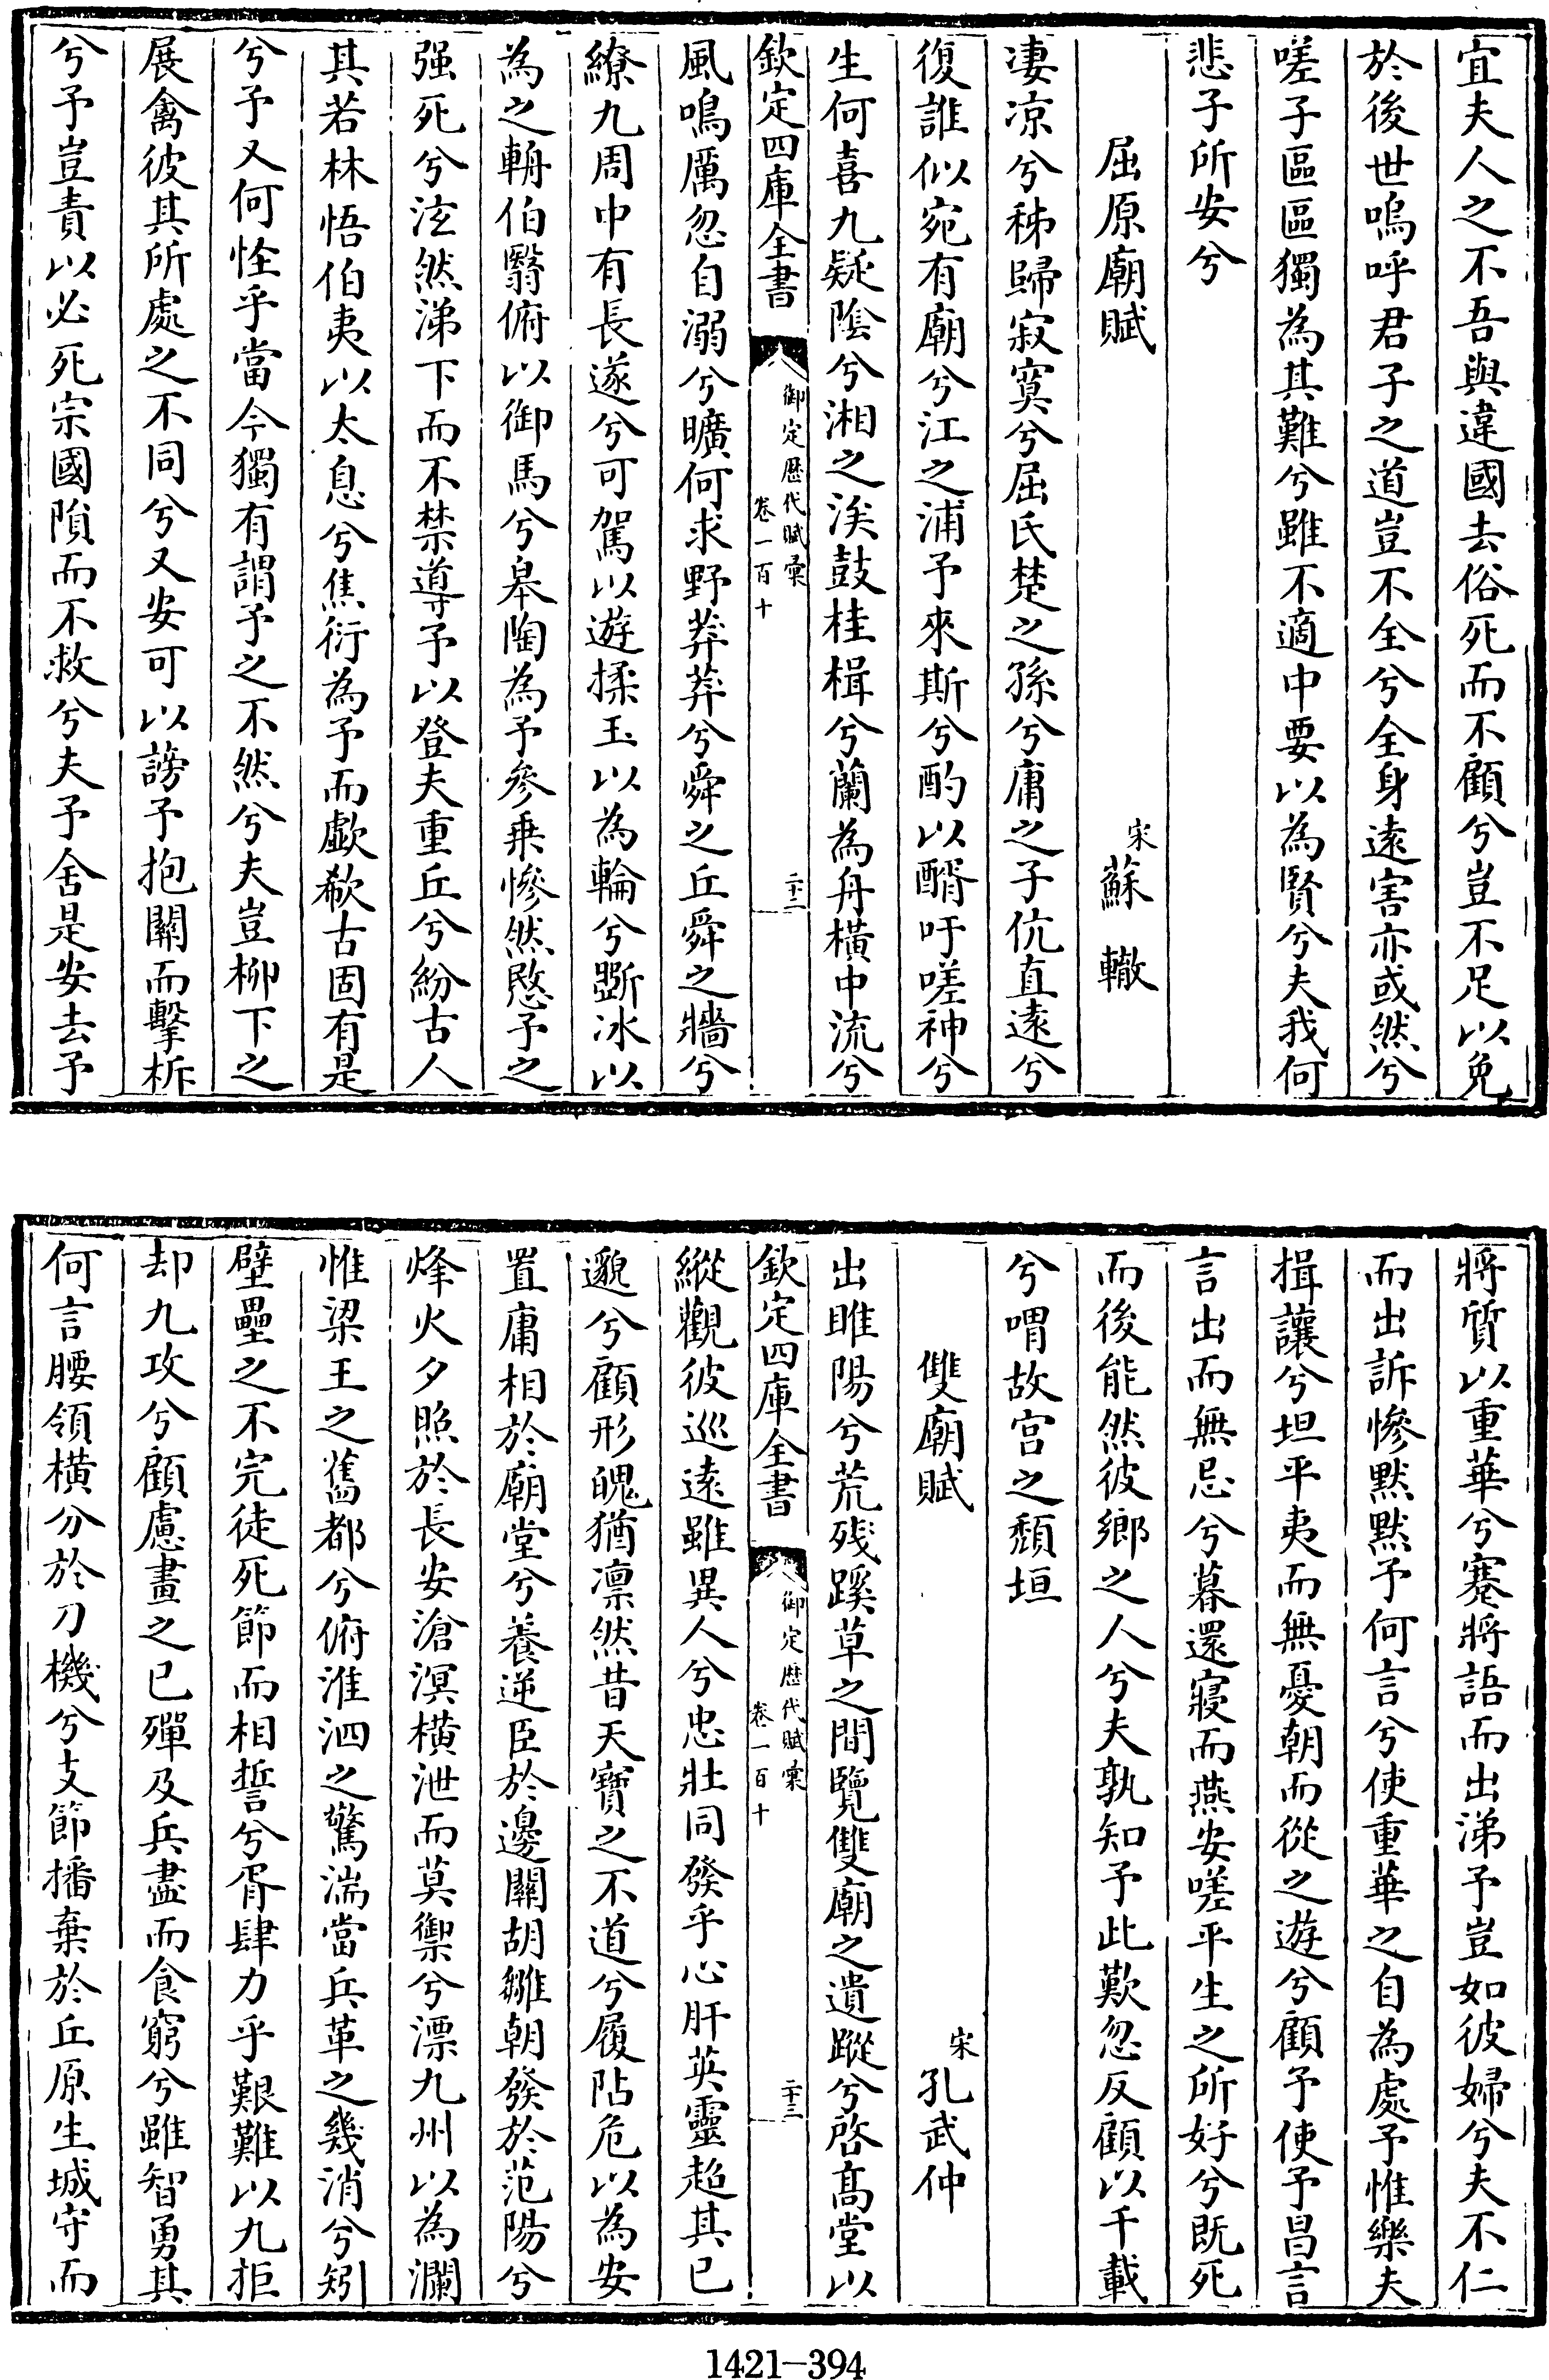 宜夫人之不吾與違國去俗死而不顧兮豈不足以免
於後世嗚呼君子之道豈不全兮全身遠害亦或然兮
嗟子區區獨為其難兮雖不適中要以為賢兮夫我何
悲子所安兮
屈原廟賦
宋蘇轍
凄凉兮秭歸寂寞兮屈氏楚之孫兮庸之子伉直遠兮
復誰似宛有廟兮江之浦予來斯兮酌以醑吁嗟神兮
生何喜九疑陰兮湘之涘鼓桂楫兮蘭為舟橫中流兮
欽定四庫全書
御定歷代賦彙
卷一百十
二十二
風鳴厲忽自溺兮曠何求野莽莽兮舜之丘舜之牆兮
繚九周中有長遂兮可駕以遊揉玉以為輪兮斲冰以
為之輈伯翳俯以御馬兮皋陶為予參乗慘然愍予之
强死兮泫然涕下而不禁導予以登夫重丘兮紛古人
其若林悟伯夷以太息兮焦衍為予而歔欷古固有是
兮予又何怪乎當今獨有謂予之不然兮夫豈柳下之
展禽彼其所處之不同兮又安可以謗予抱關而擊柝
兮予豈責以必死宗國隕而不救兮夫予舍是安去予
將質以重華兮蹇將語而出涕予豈如彼婦兮夫不仁
而出訴慘黙黙予何言兮使重華之自為處予惟樂夫
揖讓兮坦平夷而無憂朝而從之遊兮顧予使予昌言
言出而無忌兮暮還寢而燕安嗟平生之所好兮既死
而後能然彼鄉之人兮夫孰知予此歎忽反顧以千載
兮喟故宫之頽垣
雙廟賦
宋孔武仲
出睢陽兮荒残蹊草之間覽雙廟之遺蹤兮啓髙堂以
欽定四庫全書
御定歷代賦彙
卷一百十
二十三
縱觀彼巡遠雖異人兮忠壯同發乎心肝英靈超其已
邈兮顧形魄猶凛然昔天寶之不道兮履阽危以為安
置庸相於廟堂兮養逆臣於邊關胡雛朝發於范陽兮
烽火夕照於長安滄溟横泄而莫禦兮漂九州以為瀾
惟梁王之舊都兮俯淮泗之驚湍當兵革之幾消兮矧
壁壘之不完徒死節而相誓兮胥肆力乎艱難以九拒
却九攻兮顧慮畫之已殫及兵盡而食窮兮雖智勇其
何言腰領横分於刀機兮支節播棄於丘原生城守而
1421—394